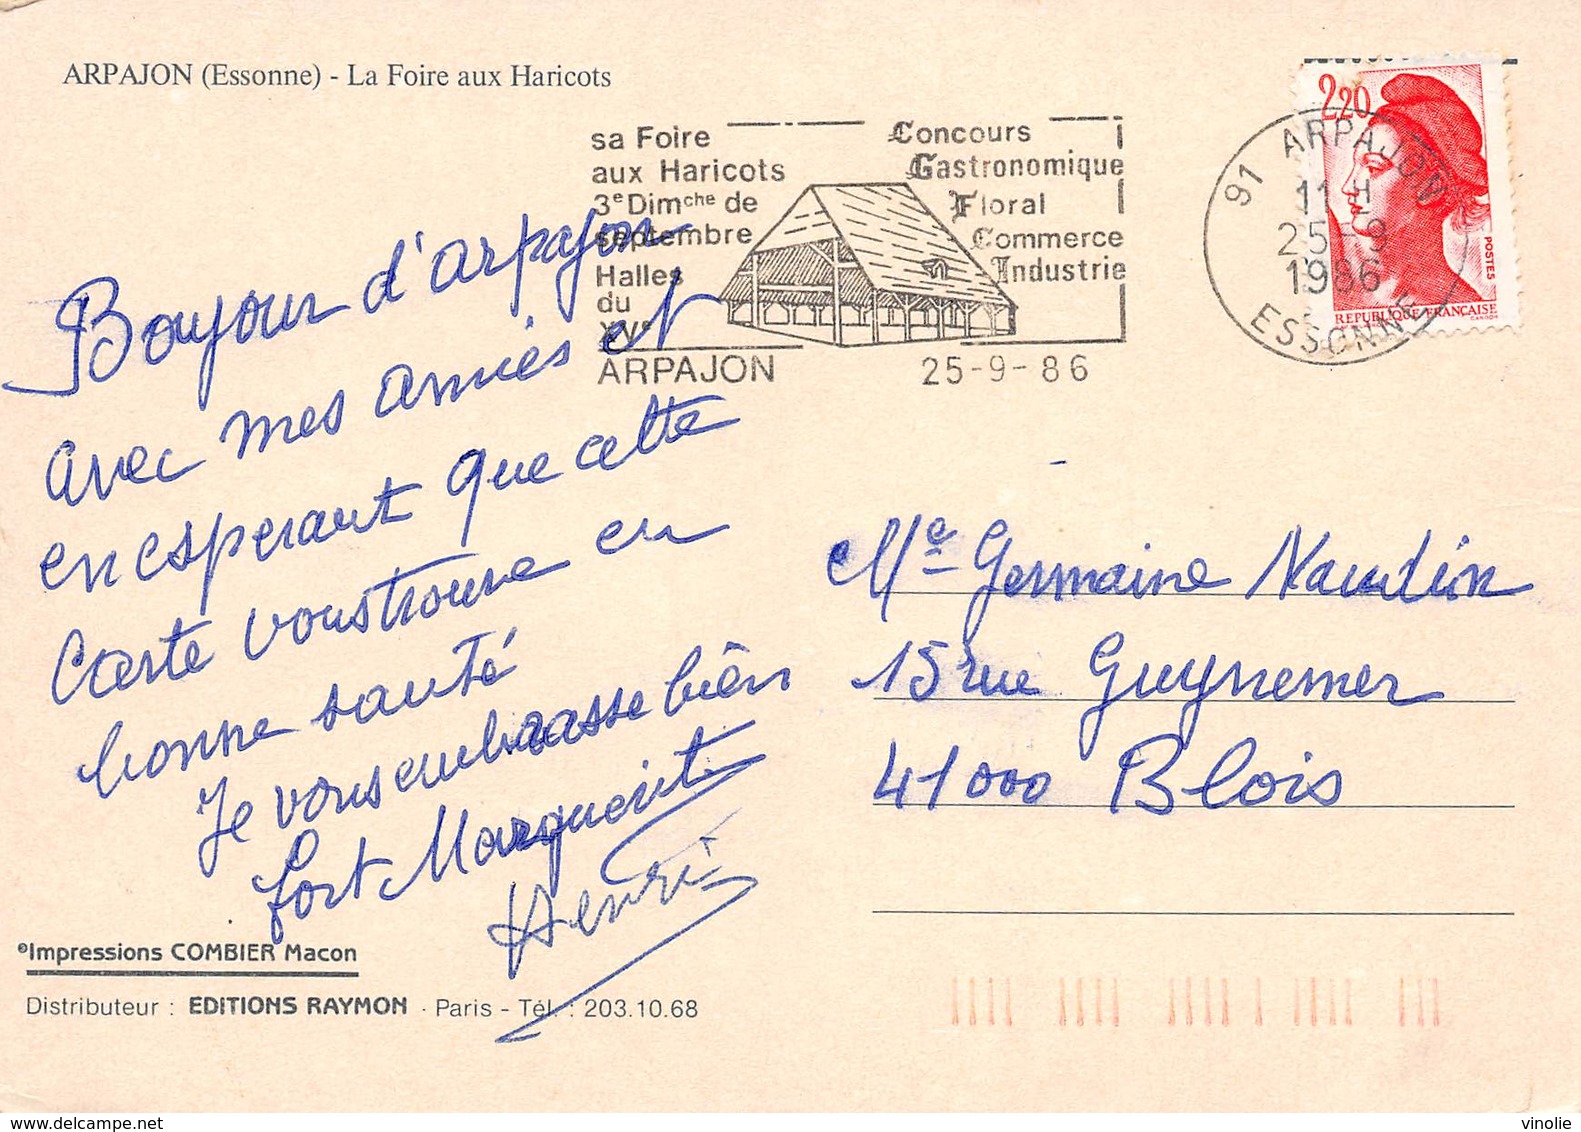 ARPAJON (Essonne) - La Foire aux Haricots
sa Foire
aux Haricots
3e Dimche de
septembre
Halles
du
XVe
ARPAJON
Concours
Gastronomique
Floral
Commerce
Industrie
25-9-86
2,20
POSTES
REPUBLIQUE FRANÇAISE
91 ARPAJON
11 H
25-9
1986
ESSONNE
Bonjour d'arpajon
avec mes amiés et
en esperant que cette
carte vous trouve en
bonne santé
Je vous embrasse bien
fort Marguerite
Henri
Me Germaine Naudin
15 rue Guynemer
41000 Blois
Impressions COMBIER Macon
Distributeur : EDITIONS RAYMON - Paris - Tél. : 203.10.68
vinolie